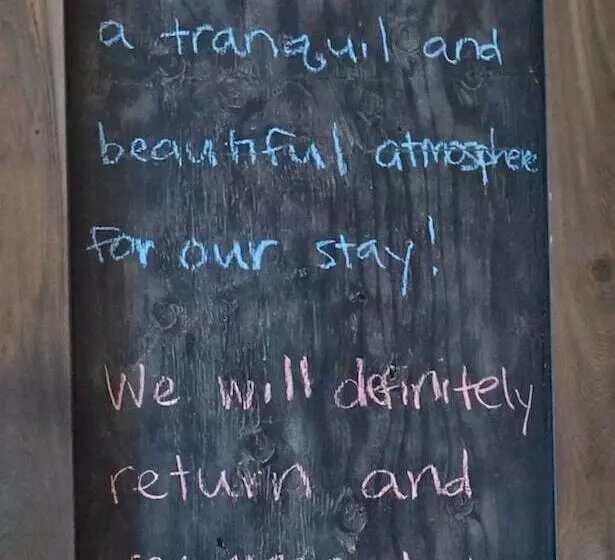 a tranquil and
beautiful atmosphere
for our stay!
We will definitely
return and